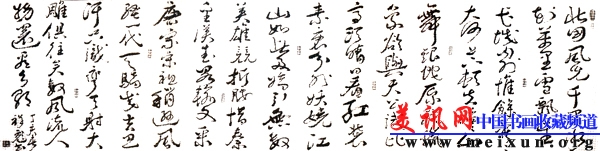 北国风光千里
封万里雪飘望
长城内外惟余莽
大河上下顿失
舞银蛇原驰蜡
象欲与天公试比
高须晴日看红装
素裹分外妖娆江
山如此多娇引无数
英雄竞折腰惜秦
皇汉武略输文采
唐宗宋祖稍逊风
骚一代天骄成吉思
汗只识弯弓射大
雕俱往矣数风流人
物还看今朝
丁亥
美讯网 中国书画收藏频道
www.meixun.org